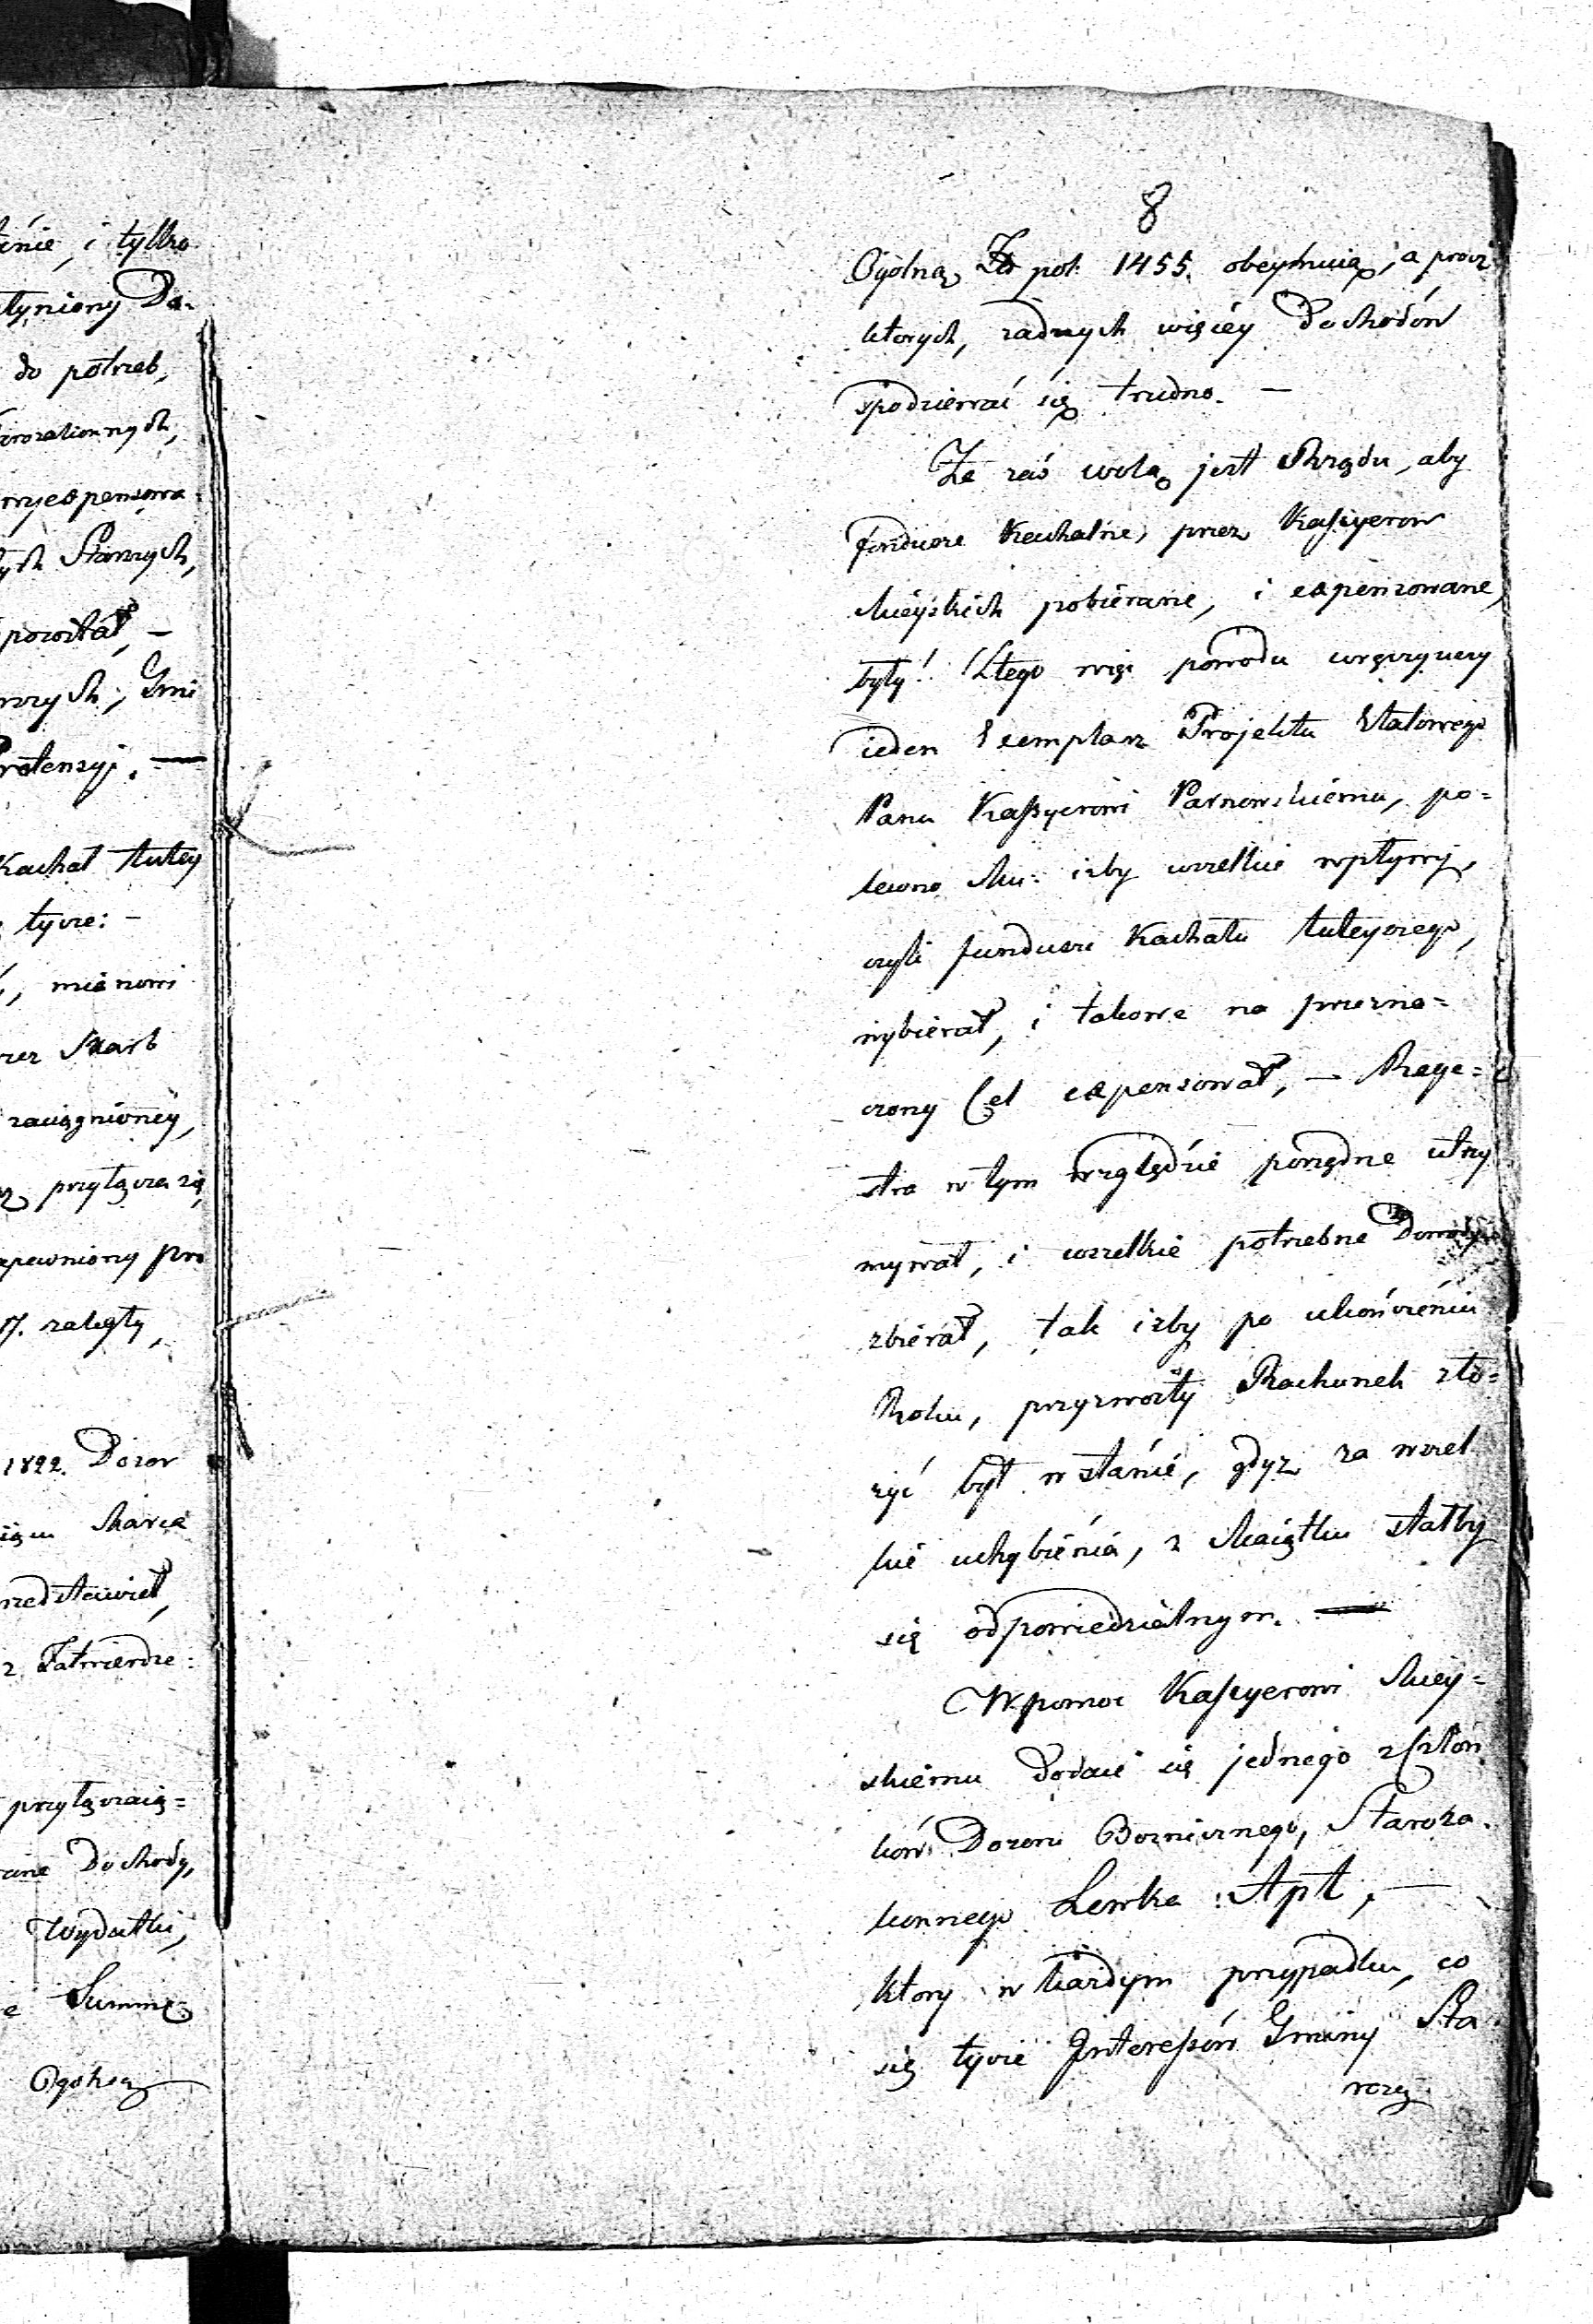 inie, i tylko
łyniony Do-
do potrzeb,
wyexpensowa
ych Starszych,
pozostał, –
rszych, Gmi
Pretensyi. —
Kachał tutey
tycze: –
mianowi
rzez Skarb
zaciągnioney,
przyłącza się
apewniony pro
17. zaległy,
1822. Dozor
Marca
rzedstawiał,
z Zatwierdze:
przyłączaią=
Dochody,
Wydatki,
Summę
Ogolną
8
Ogolną Zło pol: 1455. obeymuią, a procz
ktorych, zadnych więcéy Dochodów
spodziewać się trudno. –
Ze zaś wolą jest Rządu, aby
fundusze Kachalne, przez Kassyerow
Mieyskich pobierane, i expensowane,
były! Ztego więc powodu wręczywszy
ieden Exemplarz Projektu Etatowego
Panu Kassyerowi Parnowskiému, po=
lecono Mu: izby wszelkie wpływy,
czyli fundusze Kachału tuteyszego,
wybierał, i takowe na przezna=
czony Cel expensował, – Reye=
stra w tym względzie porządne utrzy
mywał, i wszelkie potrzebne Dowody
zbierał, tak izby po ukończeniu
Roku, przyzwoity Rachunek zło=
zyć był w stanie, gdyz za wszel
kie uchybienia, z Maiątku stałby
się odpowiedzialnym. —
W pomoc Kassyerowi Miey=
skiému dodaie się jednego z Człon
ków Dozoru Boznicznego, Staroza.
konnego Lewka Apt, –
ktory w kazdym przypadku, co
się tycze Interessów Gminy Sta
rozy